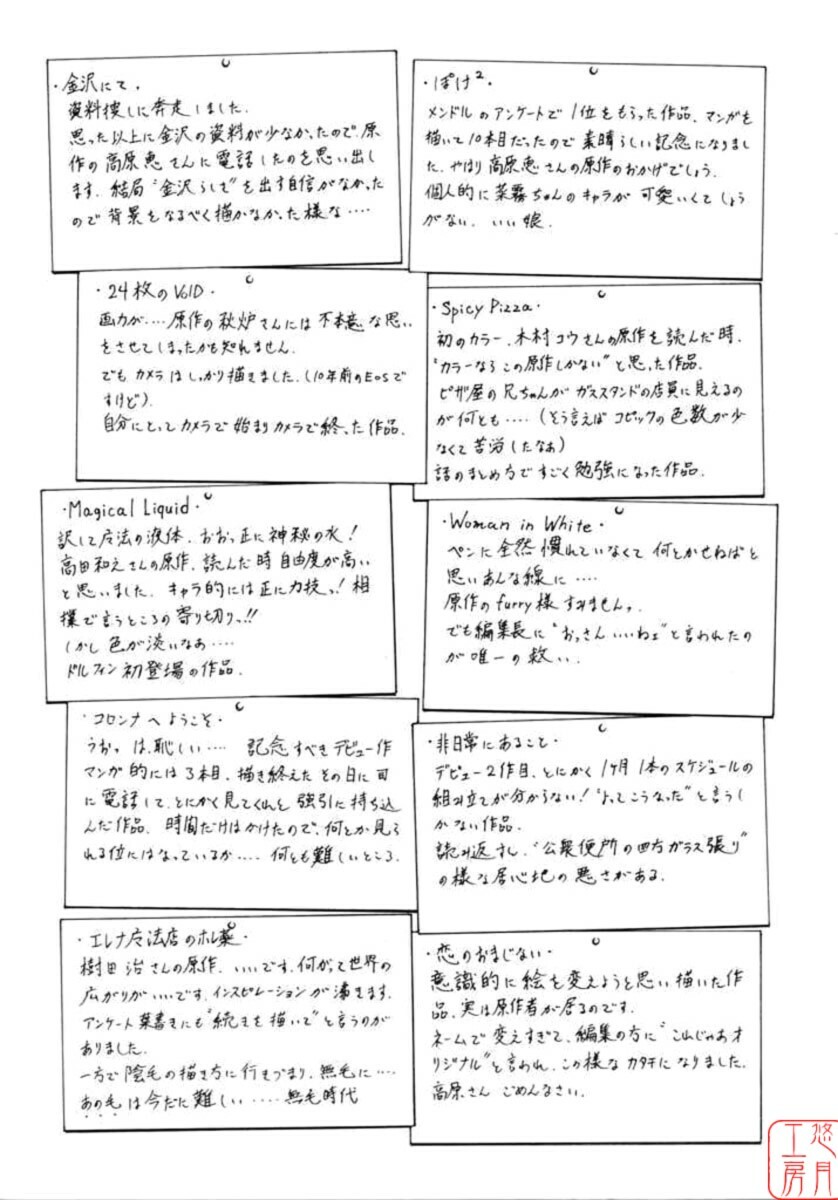 ・金沢にて・
資料捜しに奔走しました。
思った以上に金沢の資料が少なかったので、原
作の高原恵さんに電話したのを思い出し
ます。結局"金沢らしさ"を出す自信がなかった
ので背景をなるべく描かなかった様な‥‥
・ぽけ²・
メンドルのアンケートで1位をもらった作品。マンガを
描いて10本目だったので素晴らしい記念になりまし
た。やはり高原恵さんの原作のおかげでしょう。
個人的に菜霧ちゃんのキャラが可愛いくてしょう
がない。いい娘。
・24枚のVOID・
画力が‥‥原作の秋炉さんには不本意な思い
をさせてしまったかも知れません。
でもカメラはしっかり描きました。(10年前のEOSで
すけど)。
自分にとってカメラで始まりカメラで終った作品。
・Spicy Pizza・
初のカラー。木村コウさんの原作を読んだ時、
"カラーならこの原作しかない"と思った作品。
ピザ屋の兄ちゃんがガススタンドの店員に見えるの
が何とも‥‥(そう言えばコピックの色数が少
なくて苦労したなぁ)
話のまとめ方ですごく勉強になった作品。
・Magical Liquid・
訳して魔法の液体。おおっ正に神秘の水!
高田和えさんの原作、読んだ時自由度が高い
と思いました。キャラ的には正に力技っ!相
撲で言うところの寄り切りっ!!
しかし色が淡いなぁ‥‥
ドルフィン初登場の作品。
・Woman in White・
ペンに全然慣れていなくて何とかせねばと
思いあんな線に‥‥
原作のfurry様すみませんっ。
でも編集長に"おっさんいいねェ"と言われたの
が唯一の救い。
・コロンナへようこそ・
うおっは、恥しい‥‥ 記念すべきデビュー作
マンガ的には3本目。描き終えたその日に司
に電話して、とにかく見てくれと強引に持ち込
んだ作品。時間だけはかけたので、何とか見ら
れる位にはなっているが‥‥何とも難しいところ。
・非日常にあること・
デビュー2作目。とにかく1ヶ月1本のスケジュールの
組み立てが分からない!"よってこうなった"と言うし
かない作品。
読み返すし、"公衆便所の四方ガラス張り"
の様な居心地の悪さがある。
・エレナ魔法店のホレ薬・
樹田治さんの原作。いいです。何がって世界の
広がりがいいです。インスピレーションが湧きます。
アンケート葉書きにも"続きを描いて"と言うのが
ありました。
一方で陰毛の描き方に行きづまり、無毛に‥‥
あの毛は今だに難しい‥‥‥無毛時代
・恋のおまじない・
意識的に絵を変えようと思い描いた作
品。実は原作者が居るのです。
ネームで変えすぎて、編集の方に"これじゃあオ
リジナル"と言われ、この様なカタチになりました。
高原さん ごめんなさい。
悠月工房